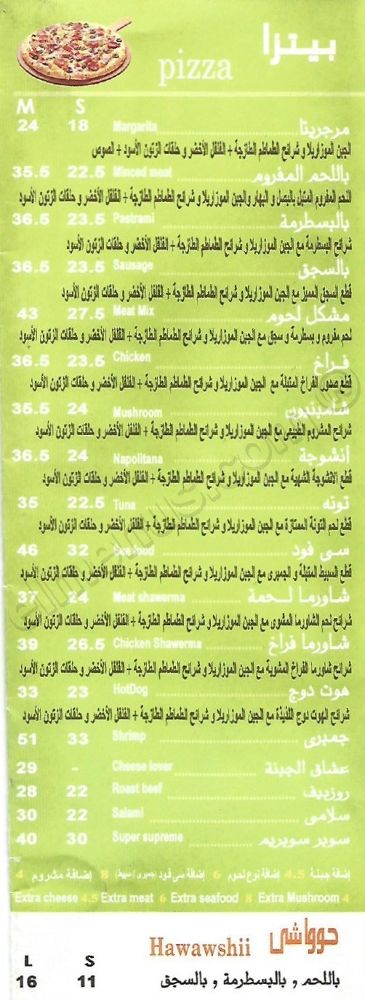 بيتزا
pizza
M S
24 18 Margarita مرجريتا
الجبن الموزاريلا و شرائح الطماطم الطازجة + الفلفل الأخضر و حلقات الزتون الأسود + الصوص
35.5 22.5 Minced meat باللحم المفروم
اللحم المفروم المتبل بالبصل و البهار والجبن الموزاريلا و شرائح الطماطم الطازجة + الفلفل الأخضر و حلقات الزتون الأسود
36.5 23.5 Pastrami بالبسطرمة
شرائح البسطرمة مع الجبن الموزاريلا و شرائح الطماطم الطازجة + الفلفل الأخضر و حلقات الزتون الأسود
36.5 23.5 Sausage بالسجق
قطع السجق المميز مع الجبن الموزاريلا و شرائح الطماطم الطازجة + الفلفل الأخضر و حلقات الزتون الأسود
43 27.5 Meat Mix مشكل لحوم
لحم مفروم و بسطرمة و سجق مع الجبن الموزاريلا و شرائح الطماطم الطازجة + الفلفل الأخضر و حلقات الزتون الأسود
36.5 23.5 Chicken فراخ
قطع صدور الفراخ المتبلة مع الجبن الموزاريلا و شرائح الطماطم الطازجة + الفلفل الأخضر و حلقات الزتون الأسود
35.5 24 Mushroom شامبنيون
شرائح المشروم الطبيعى مع الجبن الموزاريلا و شرائح الطماطم الطازجة + الفلفل الأخضر و حلقات الزتون الأسود
36.5 24 Napolitana أنشوجة
قطع الانشوجة الشهية مع الجبن الموزاريلا و شرائح الطماطم الطازجة + الفلفل الأخضر و حلقات الزتون الأسود
35 22.5 Tuna تونه
قطع لحم التونة الممتازة مع الجبن الموزاريلا و شرائح الطماطم الطازجة + الفلفل الأخضر و حلقات الزتون الأسود
46 32 Sea food سى فود
قطع السبيط المتبلة و الجمبرى مع الجبن الموزاريلا و شرائح الطماطم الطازجة + الفلفل الأخضر و حلقات الزتون الأسود
37 24 Meat shawerma شاورما لحمة
شرائح لحم الشاورما المشوى مع الجبن الموزاريلا و شرائح الطماطم الطازجة + الفلفل الأخضر و حلقات الزتون الأسود
39 26.5 Chicken Shawerma شاورما فراخ
شرائح شاورما الفراخ المشوية مع الجبن الموزاريلا و شرائح الطماطم الطازجة + الفلفل الأخضر و حلقات الزتون الأسود
33 23 HotDog هوت دوج
شرائح الهوت دوج اللذيذة مع الجبن الموزاريلا و شرائح الطماطم الطازجة + الفلفل الأخضر و حلقات الزتون الأسود
51 33 Shrimp جمبرى
29 - Cheese lover عشاق الجبنة
28 22 Roast beef روزبيف
30 22 Salami سلامى
40 30 Super supreme سوبر سوبريم
إضافة جبنة 4.5 إضافة نوع لحوم 6 إضافة سى فود 8 إضافة مشروم 4
Extra cheese 4.5 Extra meat 6 Extra seafood 8 Extra Mushroom 4
حوواشى Hawawshii
L S
باللحم و بالبسطرمة و بالسجق
16 11